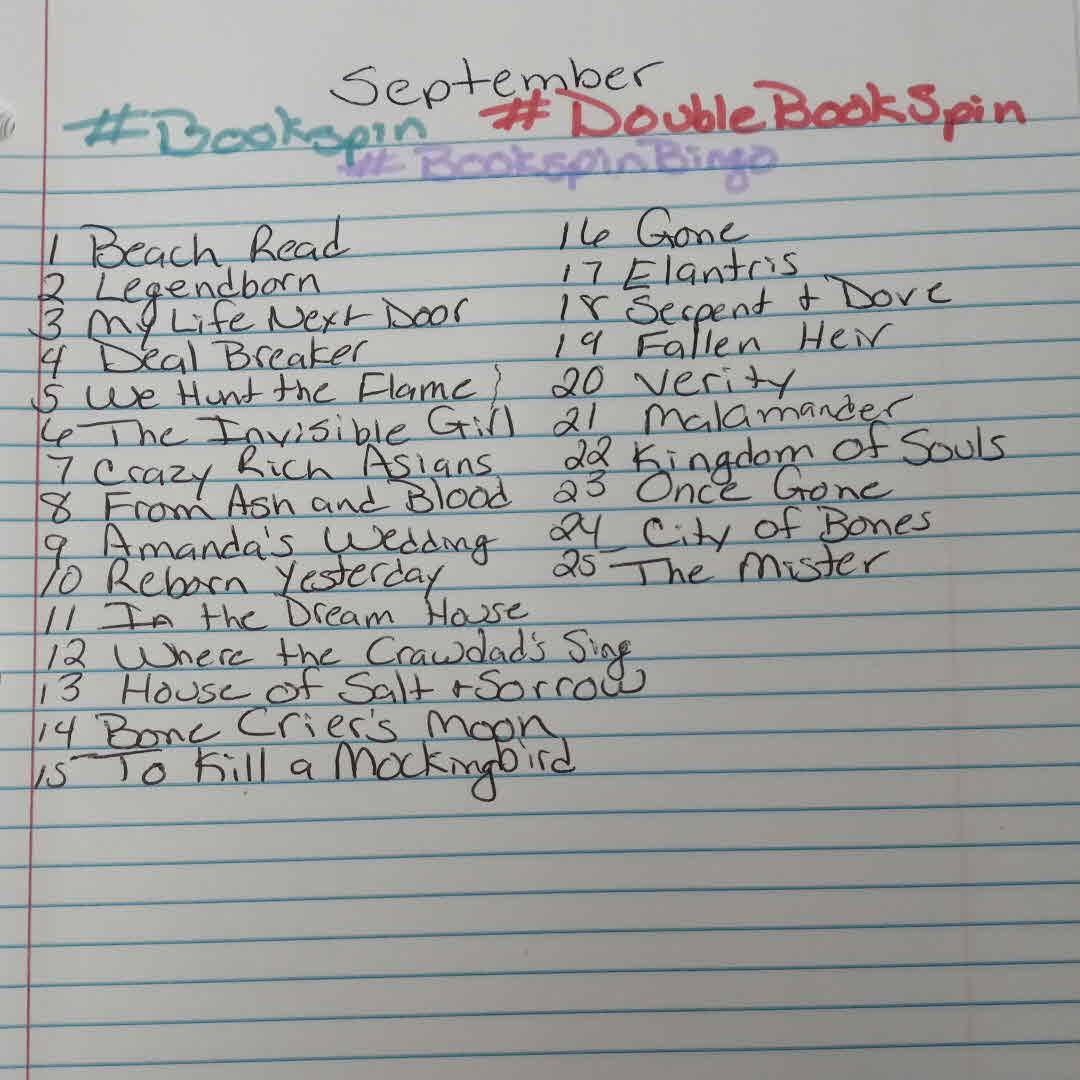 September
#Bookspin #DoubleBookSpin
#BookspinBingo
1 Beach Read
2 Legendborn
3 My Life Next Door
4 Deal Breaker
5 We Hunt the Flame
6 The Invisible Girl
7 Crazy Rich Asians
8 From Ash and Blood
9 Amanda's Wedding
10 Reborn Yesterday
11 In the Dream House
12 Where the Crawdad's Sing
13 House of Salt + Sorrow
14 Bone Crier's Moon
15 To Kill a Mockingbird
16 Gone
17 Elantris
18 Serpent + Dove
19 Fallen Heir
20 Verity
21 Malamander
22 Kingdom of Souls
23 Once Gone
24 City of Bones
25 The Mister